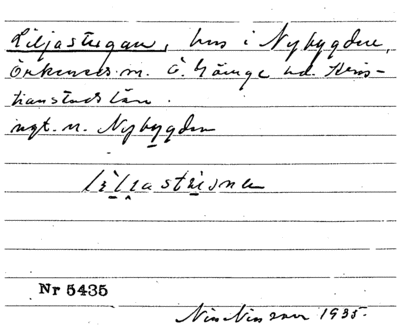 Liljastugan, hus i Nybygden,
Örkeneds sn. Ö. Göinge hd. Kris-
tianstads län.
vgt. n. Nybygden
Nr 5435
Nils Nilsson 1935.